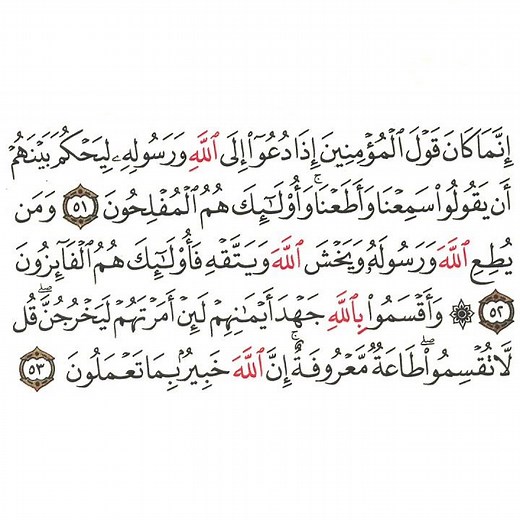 إِنَّمَا كَانَ قَوْلَ ٱلْمُؤْمِنِينَ إِذَا دُعُوٓا۟ إِلَى ٱللَّهِ وَرَسُولِهِۦ لِيَحْكُمَ بَيْنَهُمْ
أَن يَقُولُوا۟ سَمِعْنَا وَأَطَعْنَا ۚ وَأُو۟لَٰٓئِكَ هُمُ ٱلْمُفْلِحُونَ ٥١ وَمَن
يُطِعِ ٱللَّهَ وَرَسُولَهُۥ وَيَخْشَ ٱللَّهَ وَيَتَّقْهِ فَأُو۟لَٰٓئِكَ هُمُ ٱلْفَآئِزُونَ
٥٢ ۞ وَأَقْسَمُوا۟ بِٱللَّهِ جَهْدَ أَيْمَٰنِهِمْ لَئِنْ أَمَرْتَهُمْ لَيَخْرُجُنَّ ۖ قُل
لَّا تُقْسِمُوا۟ ۖ طَاعَةٌ مَّعْرُوفَةٌ ۚ إِنَّ ٱللَّهَ خَبِيرٌۢ بِمَا تَعْمَلُونَ ٥٣